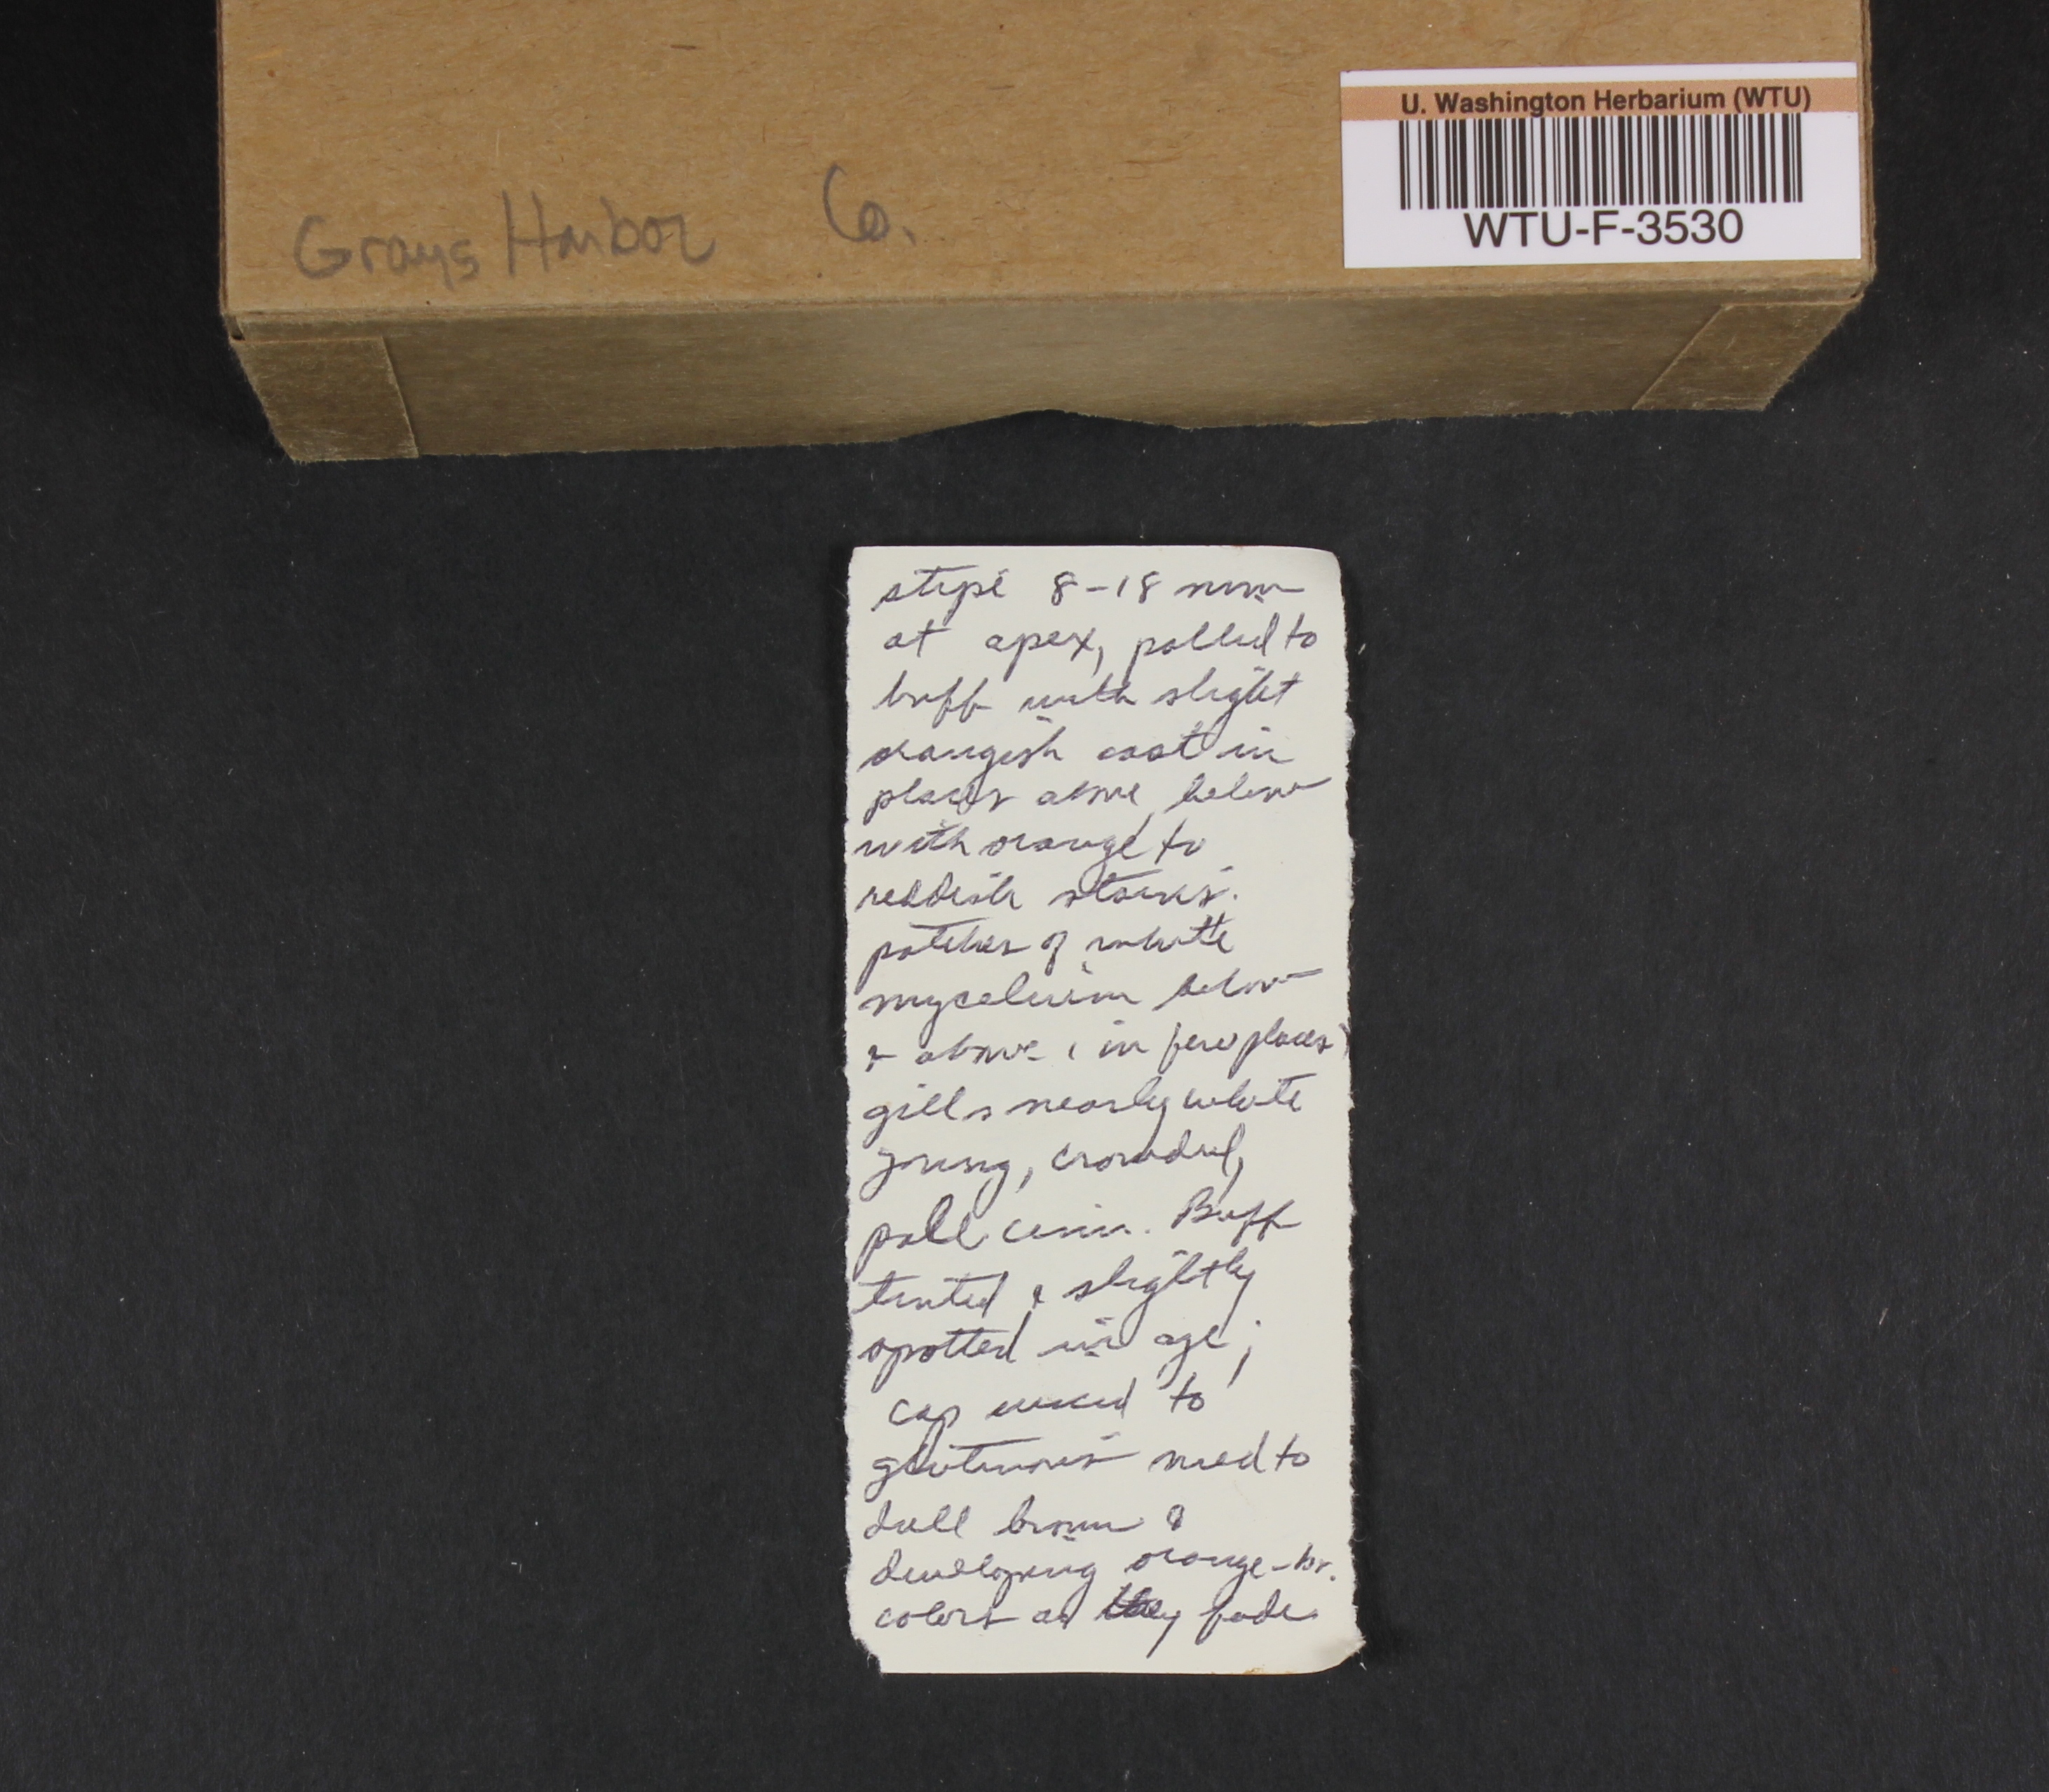 U. Washington Herbarium (WTU)
WTU-F-3530
Grays Harbor Co.
stipe 8-18 mm
at apex, pallid to
buff with slight
orangish cast in
places above, below
with orange to
reddish stains.
patches of white
mycelium below
& above (in few places)
gills nearly white
young, crowded,
pale cinn. Buff
tinted & slightly
spotted in age;
cap viscid to
glutinous med to
dull brown &
developing orange-br.
colors as they fade